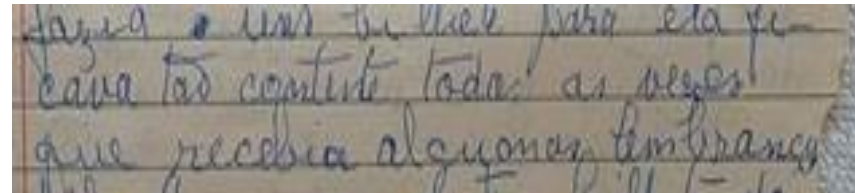 fazia uns para ela fi-
cava tão contente todas as vezes
que recebia algumas lembrança